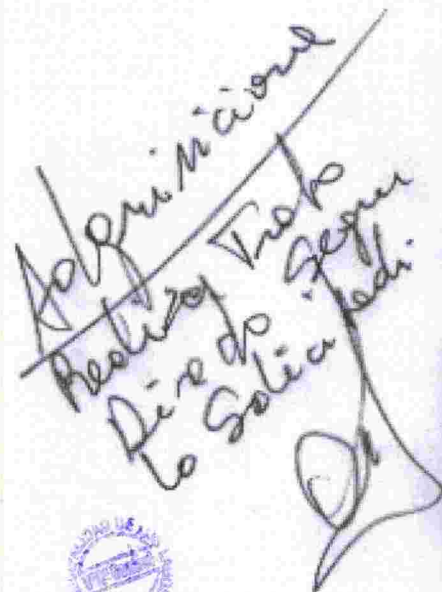 Adquisicione
Realizar Trato
Directo Segun
lo Solicitado